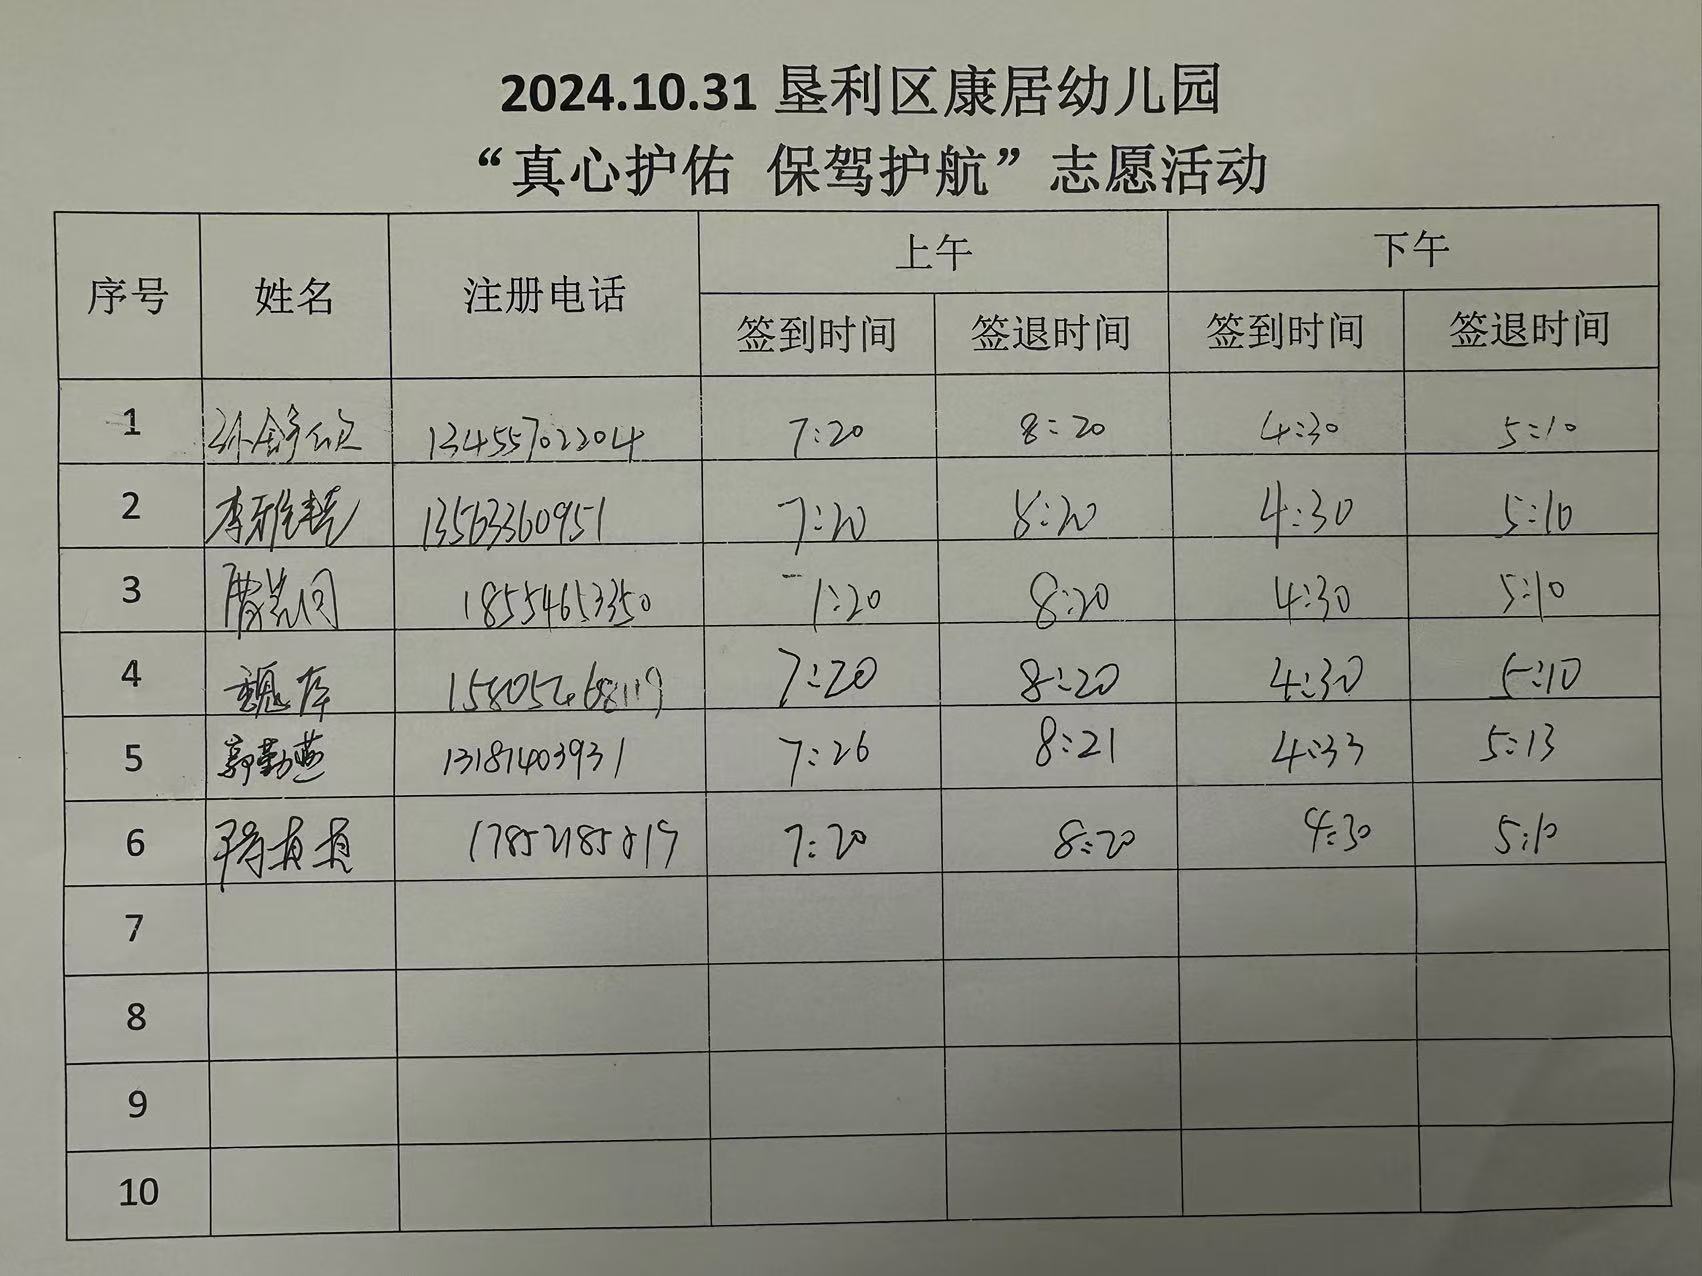 2024.10.31 垦利区康居幼儿园
“真心护佑 保驾护航”志愿活动
序号 姓名 注册电话 上午 下午
签到时间 签退时间 签到时间 签退时间
1 13455702204 7:20 8:20 4:30 5:10
2 13563360951 7:20 8:20 4:30 5:10
3 18554653350 7:20 8:20 4:30 5:10
4 7:20 8:20 4:30 5:10
5 郭勤燕 13181403931 7:26 8:21 4:33 5:13
6 7:20 8:20 4:30 5:10
7
8
9
10